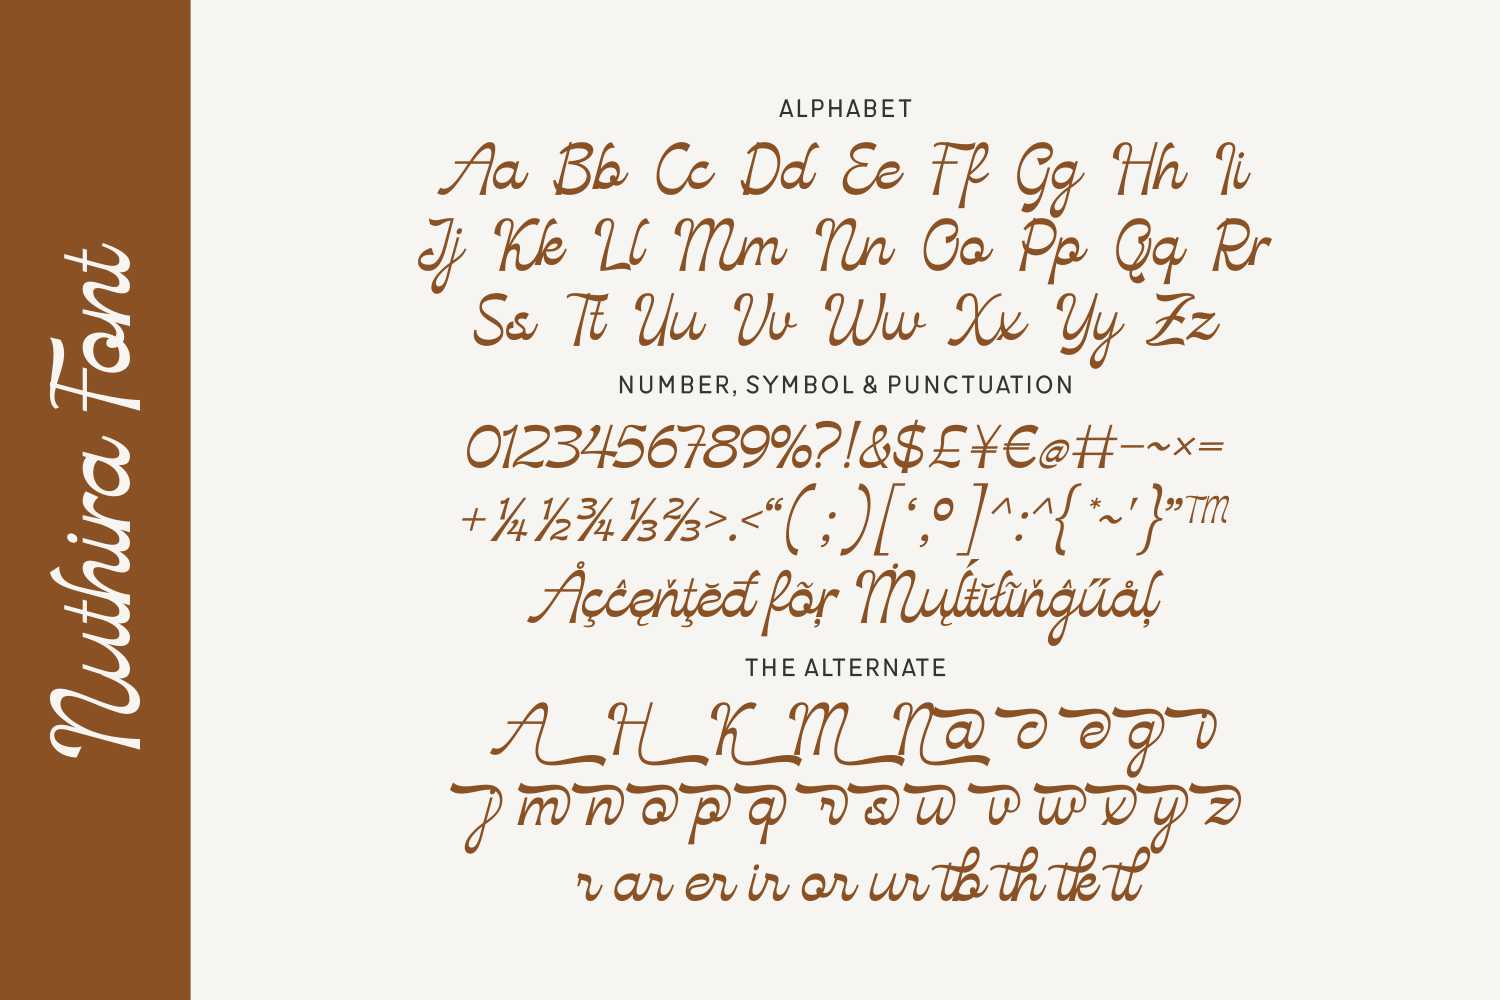 Nuthira Font
ALPHABET
Aa Bb Cc Dd Ee Ff Gg Hh Ii
Jj Kk Ll Mm Nn Oo Pp Qq Rr
Ss Tt Uu Vv Ww Xx Yy Zz
NUMBER, SYMBOL & PUNCTUATION
0123456789%?!&$£¥€@#−~×=
+¼½¾⅓⅔>.<“(;)[‘;º]^:^{*~'}”™
THE ALTERNATE
A H K M N a c e g i
j m n o p q r s u v w x y z
r ar er ir or ur tb th tk tl